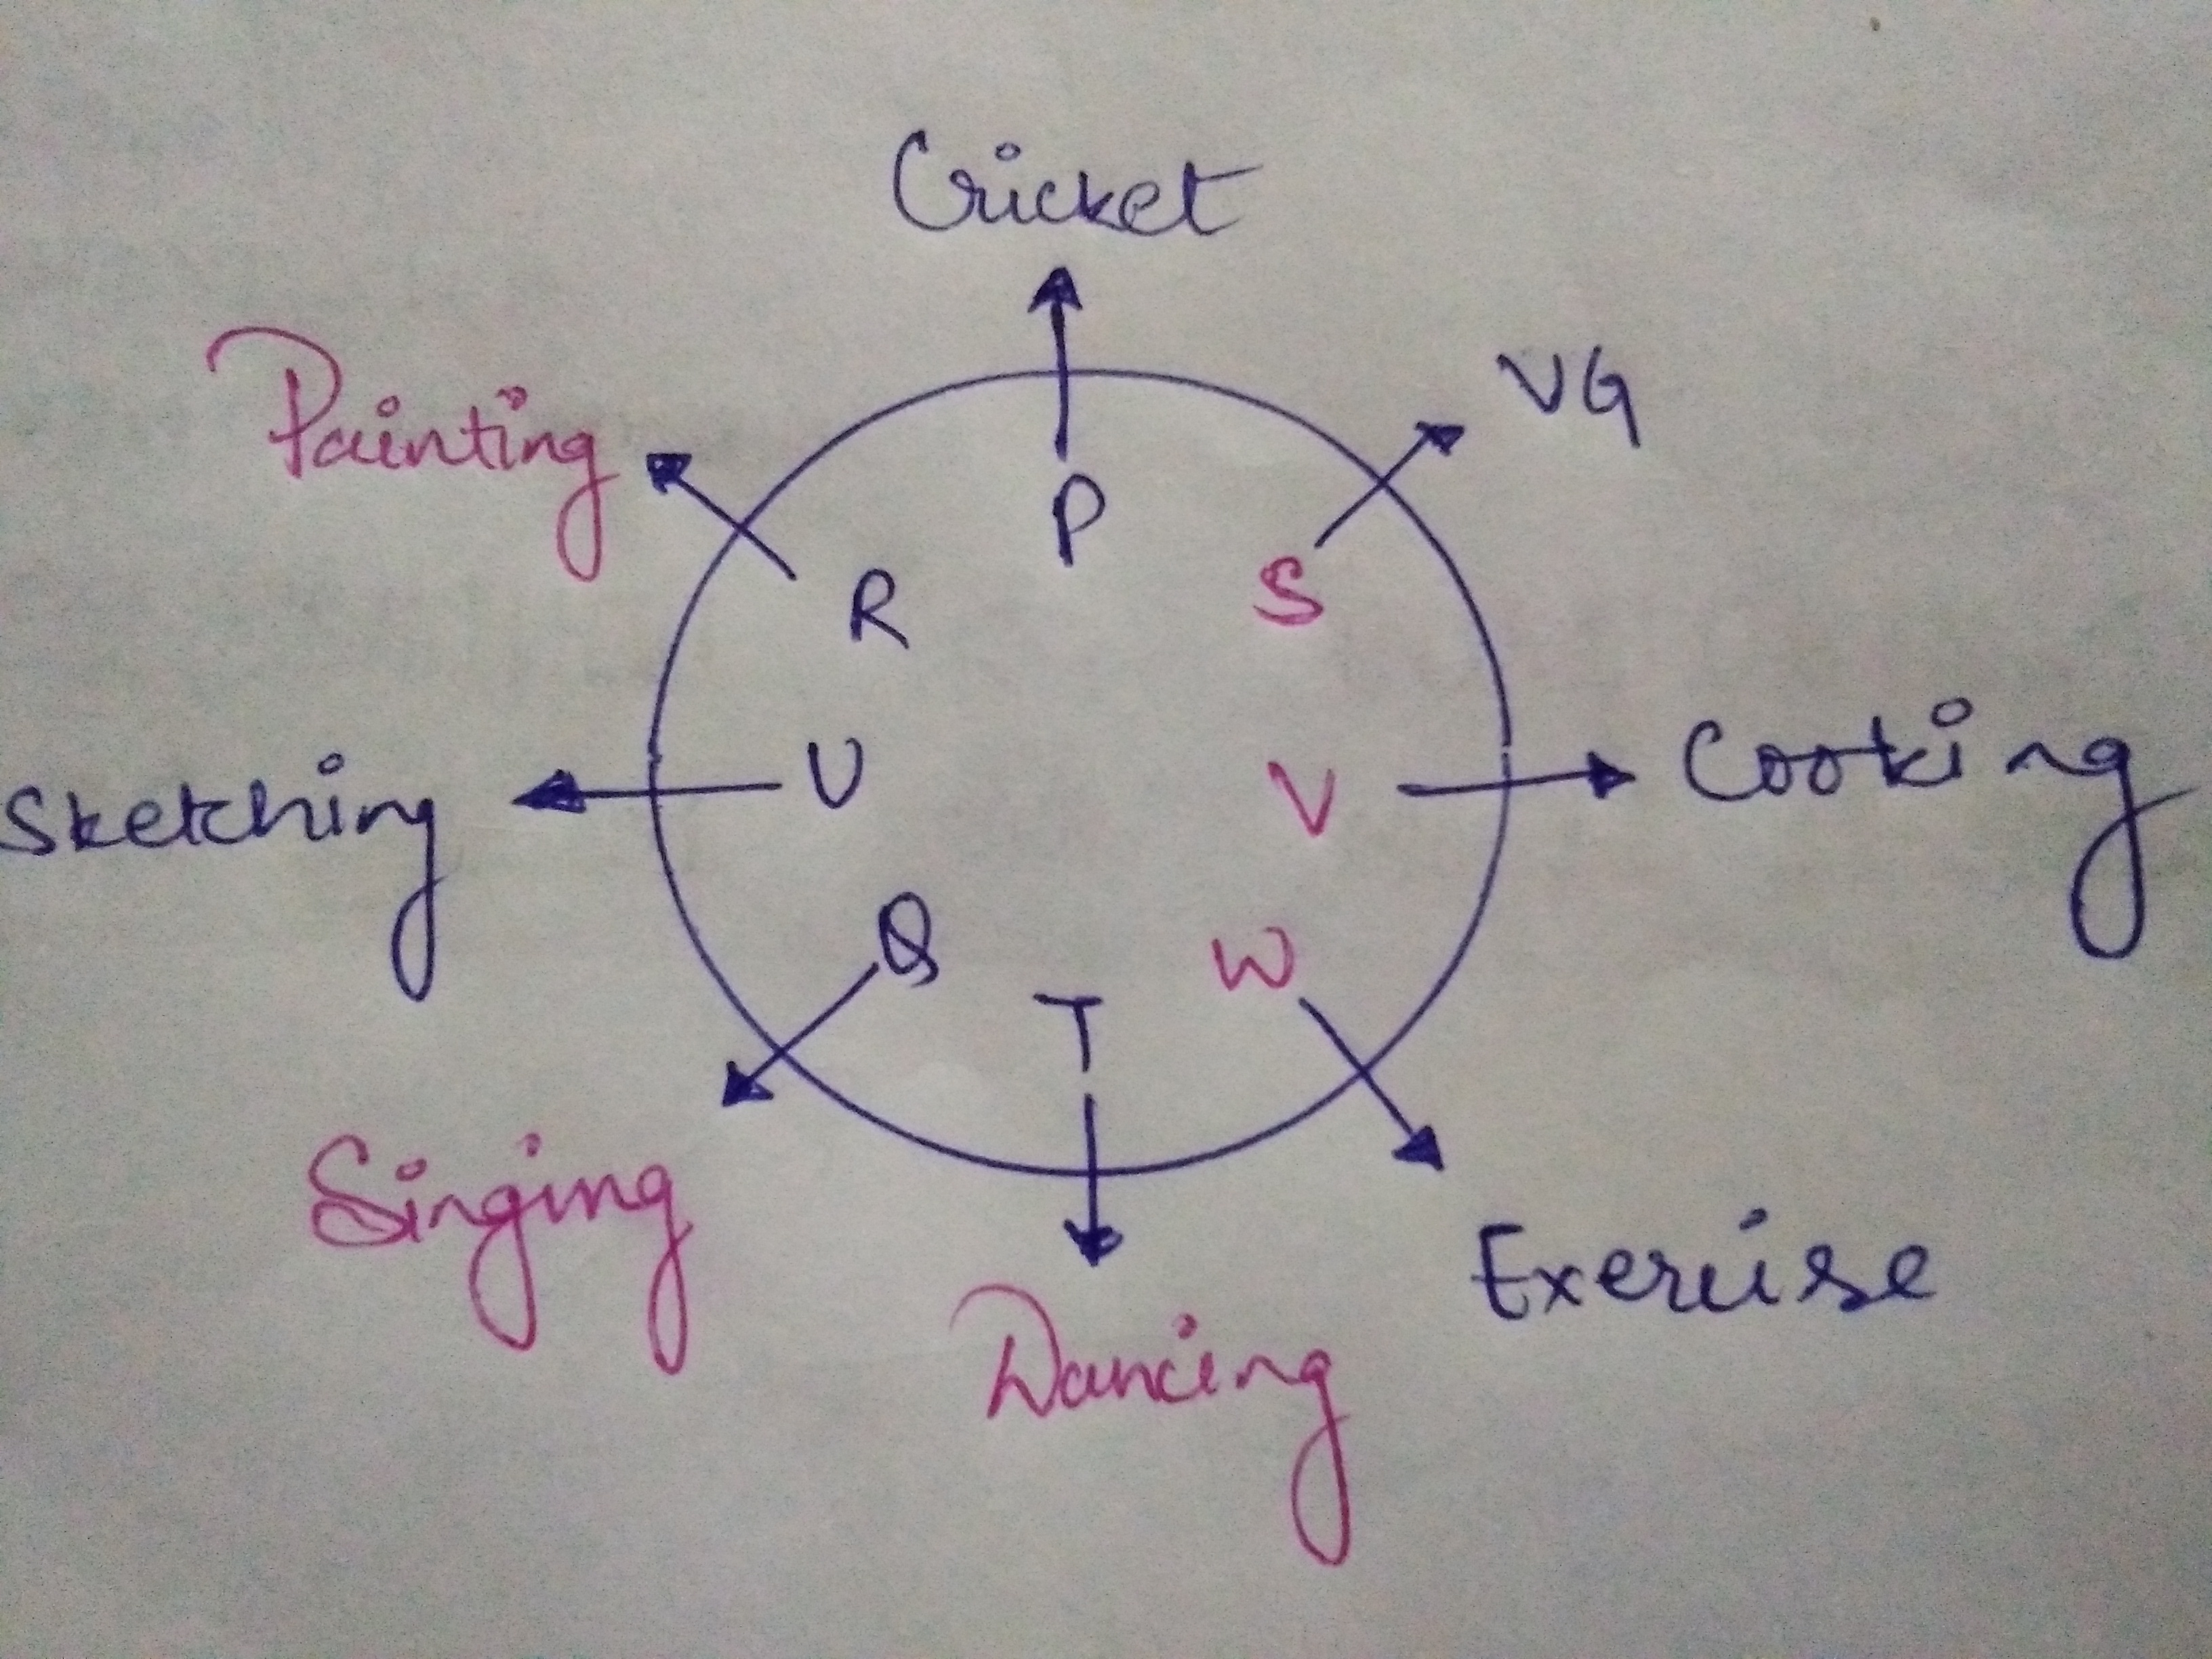 Cricket
VG
Painting
P
S
R
Cooking
Sketching
U
V
Q
W
T
Singing
Exercise
Dancing